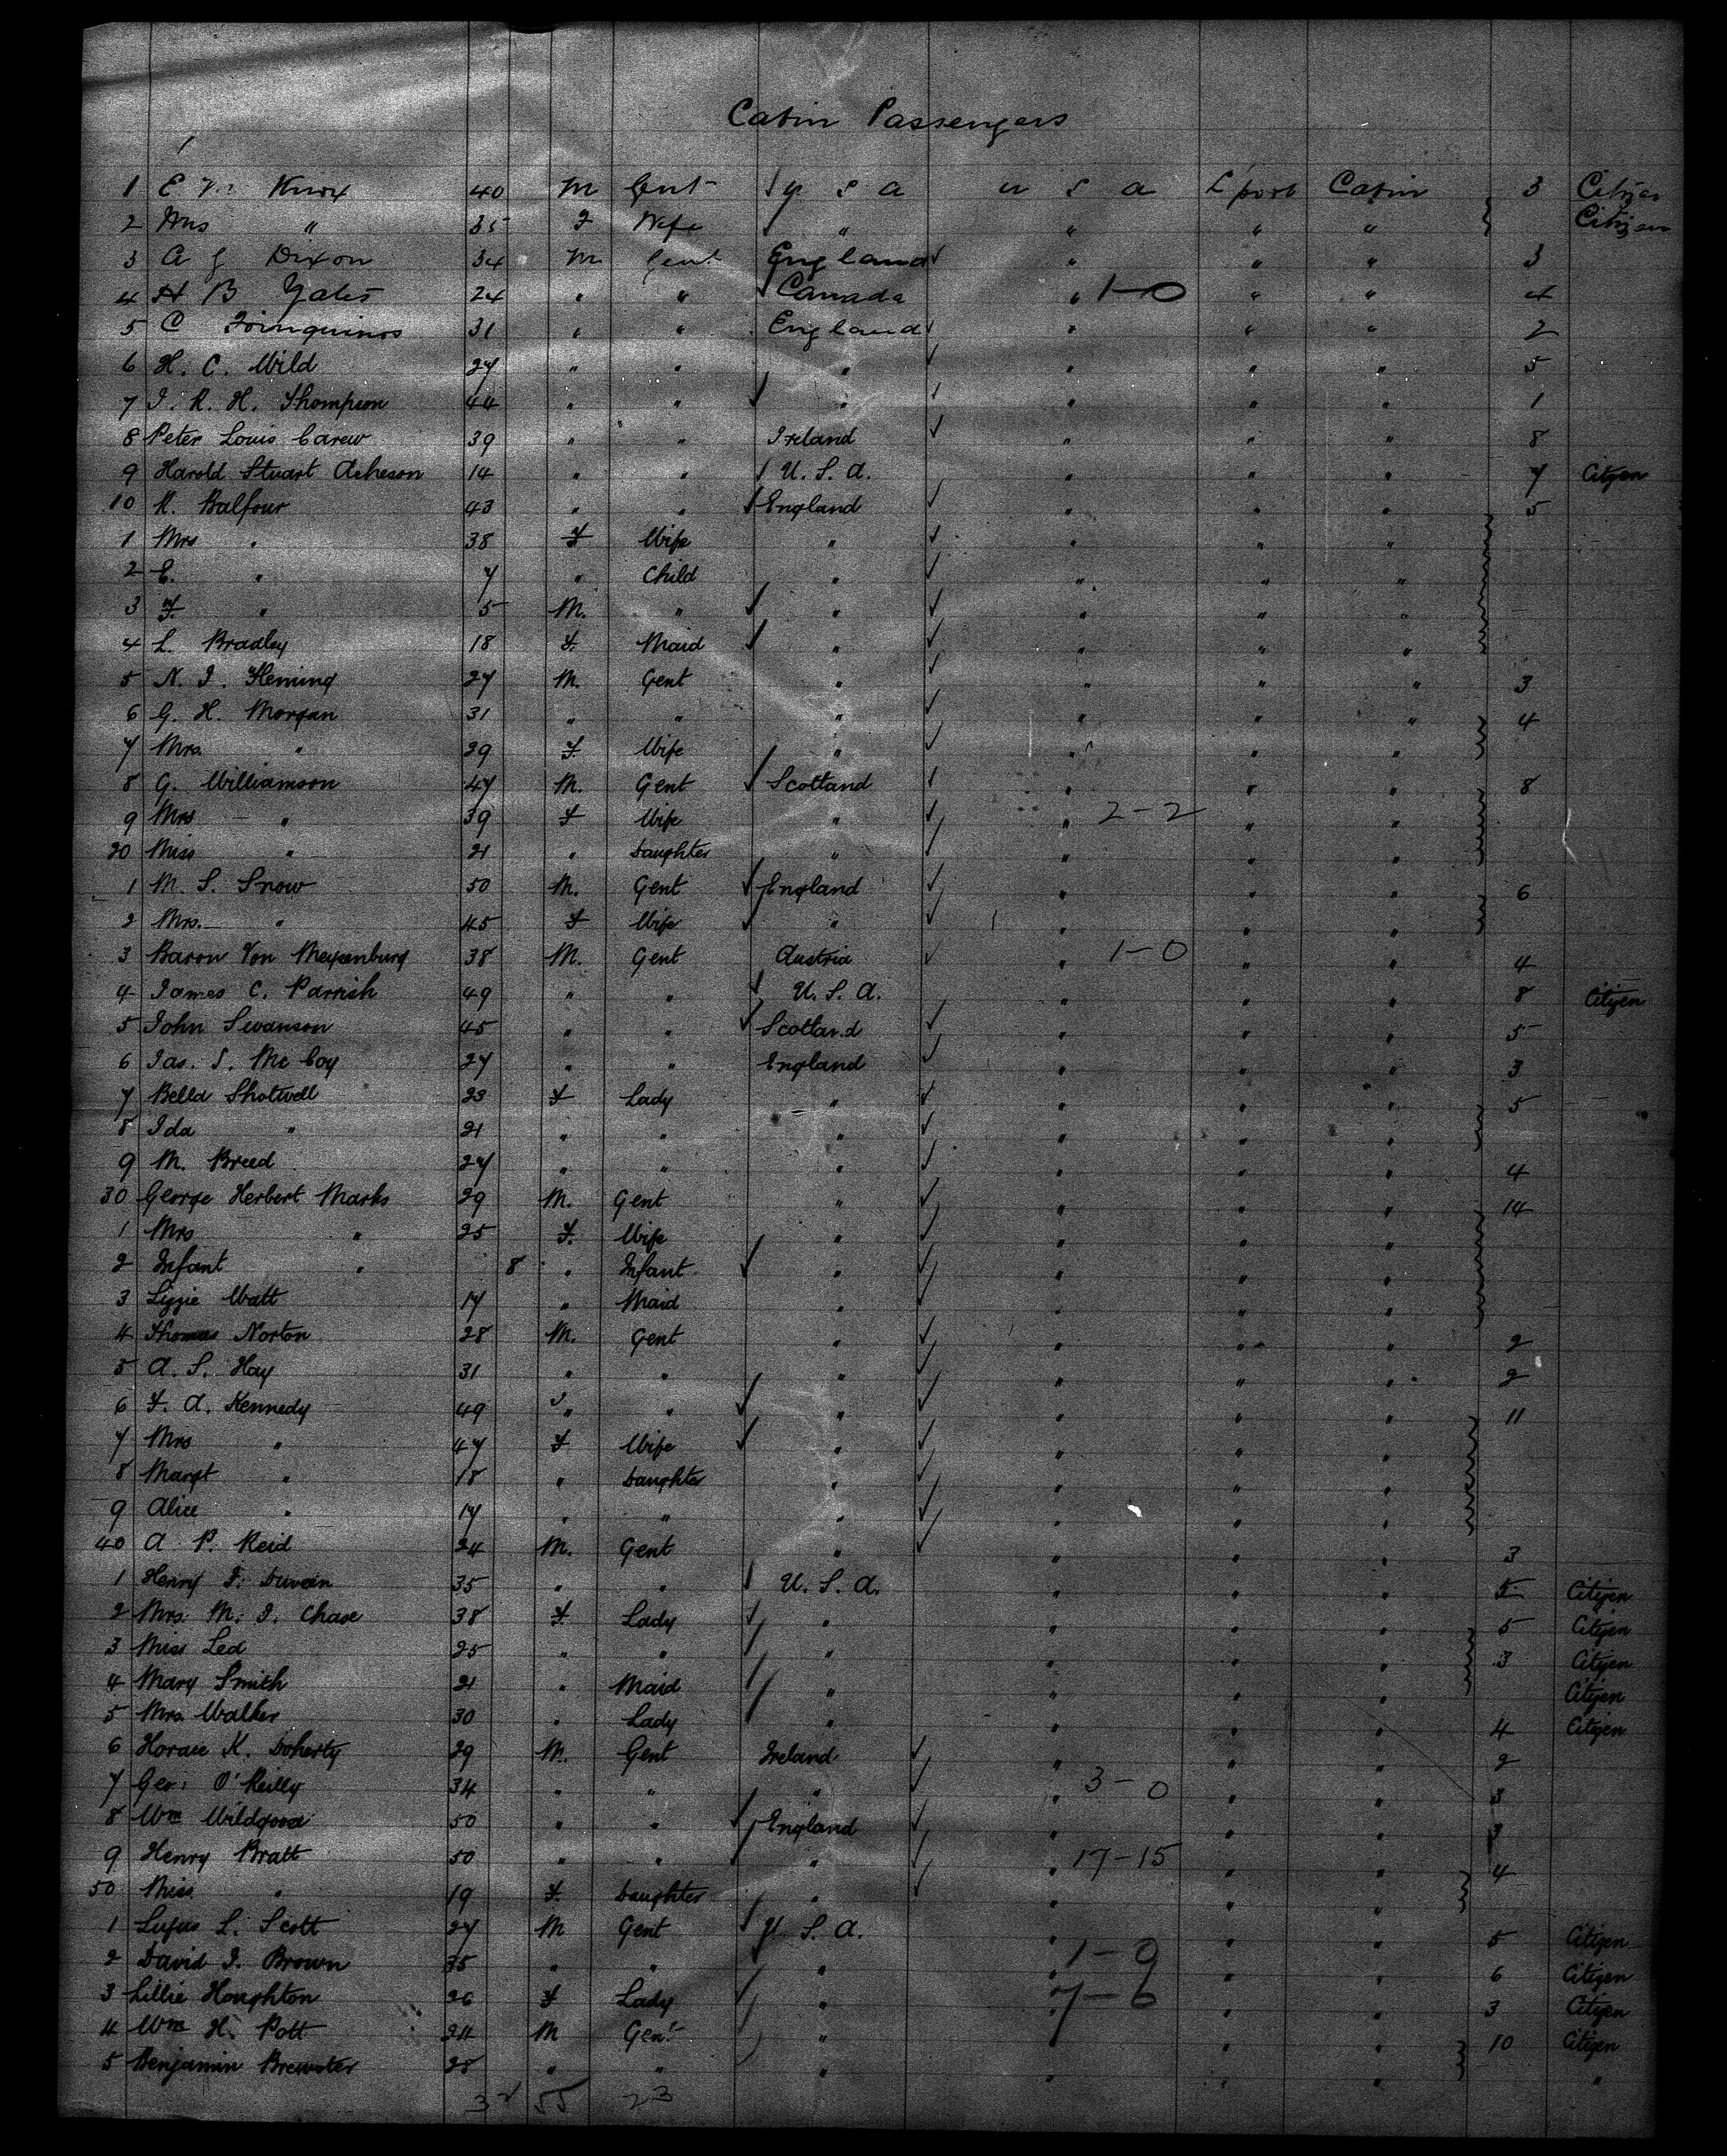 Cabin Passengers
1 E Knox 40 M Gent U S A U S A L'pool Cabin 3 Citizen
2 Mrs " 35 F Wife " " " " Citizen
3 A G Dixon 34 M Gent England " " " 3
4 H B Yates 24 " " Canada " 1-0 " " 4
5 C 31 " " England " " " 2
6 H. C. Wild 27 " " " " " " 5
7 J. R. H. Thompson 44 " " " " " " 1
8 Peter Louis Carew 39 " " Ireland " " " 8
9 Harold Stuart Acheson 14 " " U. S. A. " " " 7 Citizen
10 R. Balfour 43 " " England " " " 5
1 Mrs " 38 F Wife " " " "
2 E. " 7 " Child " " " "
3 F. " 5 M. " " " " "
4 L. Bradley 18 F. Maid " " " "
5 N. J. Fleming 27 M. Gent " " " " 3
6 G. H. Morgan 31 " " " " " " 4
7 Mrs. " 29 F. Wife " " " "
8 G. Williamson 47 M. Gent Scotland " " " 8
9 Mrs " 39 F Wife " " 2-2 " "
20 Miss " 21 " Daughter " " " "
1 M. S. Snow 50 M. Gent England " " " 6
2 Mrs. " 45 F Wife " " " "
3 Baron Von Meysenburg 38 M. Gent Austria " 1-0 " " 4
4 James C. Parrish 49 " " U. S. A. " " " 8 Citizen
5 John Swanson 45 " " Scotland " " " 5
6 Jas. S. McCoy 27 " " England " " " 3
7 Bella Shotwell 23 F Lady " " " " 5
8 Ida " 21 " " " " " "
9 M. Breed 27 " " " " " " 4
30 George Herbert Marks 29 M. Gent " " " " 14
1 Mrs " 25 F. Wife " " " "
2 Infant " 8 " Infant " " " "
3 Lizzie Watt 17 " Maid " " " "
4 Thomas Norton 28 M. Gent " " " " 2
5 A. S. Hay 31 " " " " " " 2
6 F. A. Kennedy 49 " " " " " " 11
7 Mrs " 47 F Wife " " " "
8 Margt " 18 " Daughter " " " "
9 Alice " 17 " " " " " "
40 A P. Reid 24 M. Gent " " " " 3
1 Henry 35 " " U. S. A. " " " 5 Citizen
2 Mrs. M. J. Chase 38 F. Lady " " " " 5 Citizen
3 Miss Led 25 " " " " " " 3 Citizen
4 Mary Smith 21 " Maid " " " " Citizen
5 Mrs. Walker 30 " Lady " " " " 4 Citizen
6 Horace K. Doherty 29 M. Gent Ireland " " " 2
7 Geo: O'Reilly 34 " " " " 3-0 " " 3
8 Wm Wildgoose 50 " " England " " " 3
9 Henry Bratt 50 " " " " 17-15 " " 4
50 Miss " 19 F. Daughter " " " "
1 Lufus L. Scott 27 M Gent U. S. A. " " " 5 Citizen
2 David J. Brown 35 " " " " 1-0 " " 6 Citizen
3 Lillie Houghton 26 F Lady " " 7-6 " " 3 Citizen
4 Wm H. Pott 24 M Gent " " " 10 Citizen
5 Benjamin Brewster 28 " " " " " " "
32 55 23